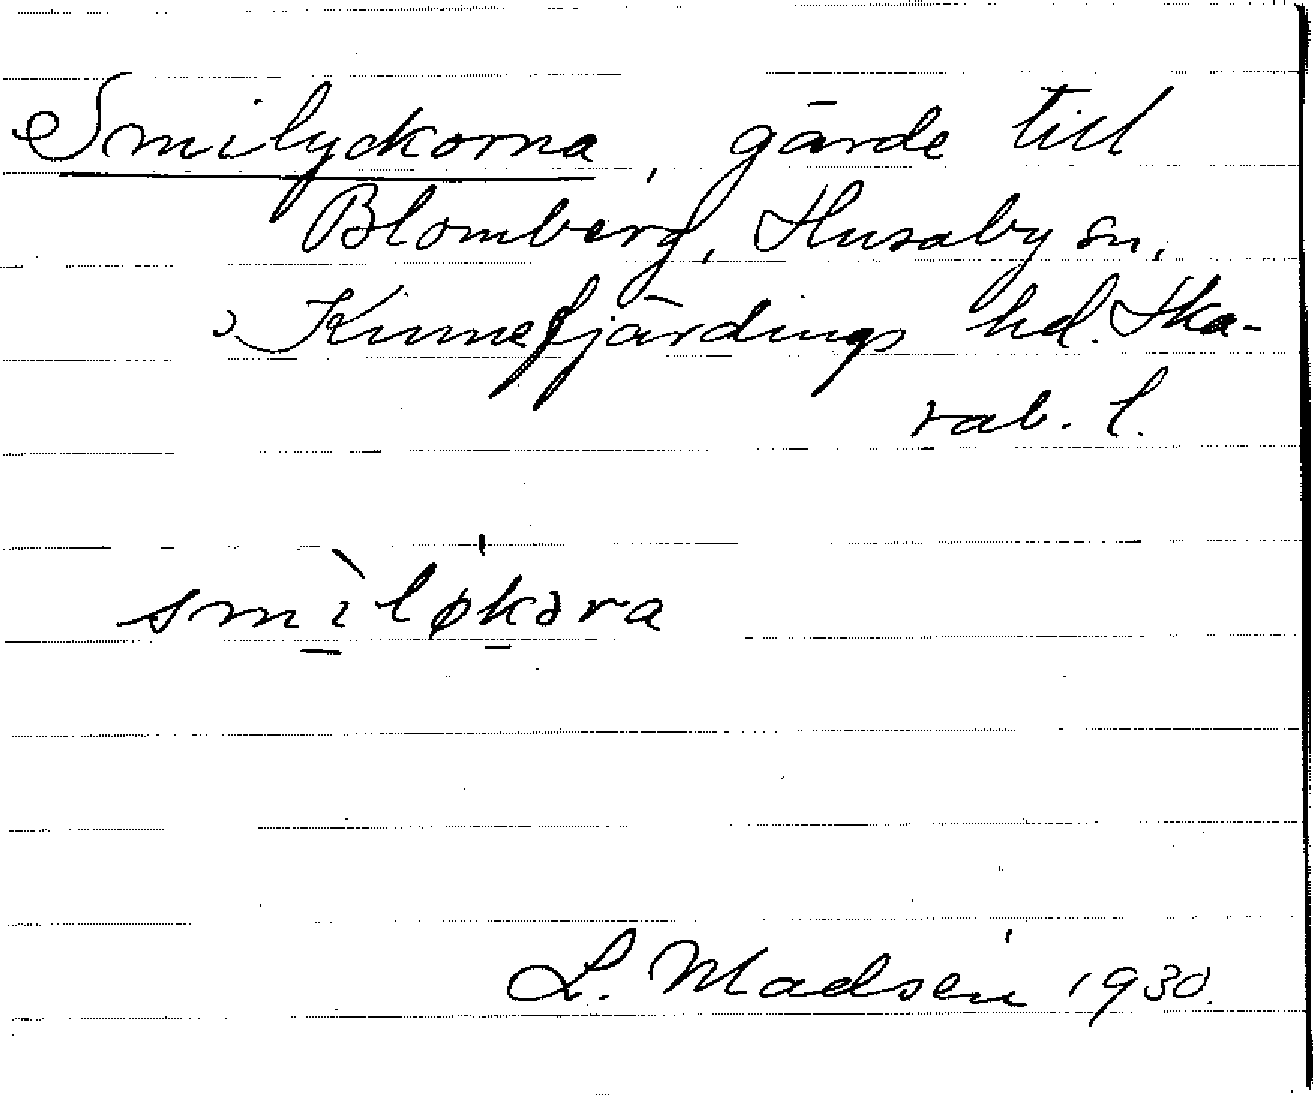 Smilyckorna, gärde till
Blomberg, Husaby sn,
Kinnefjärdings hd. Ska-
rab. l.
smìløkɔra
L. Madsén 1930.